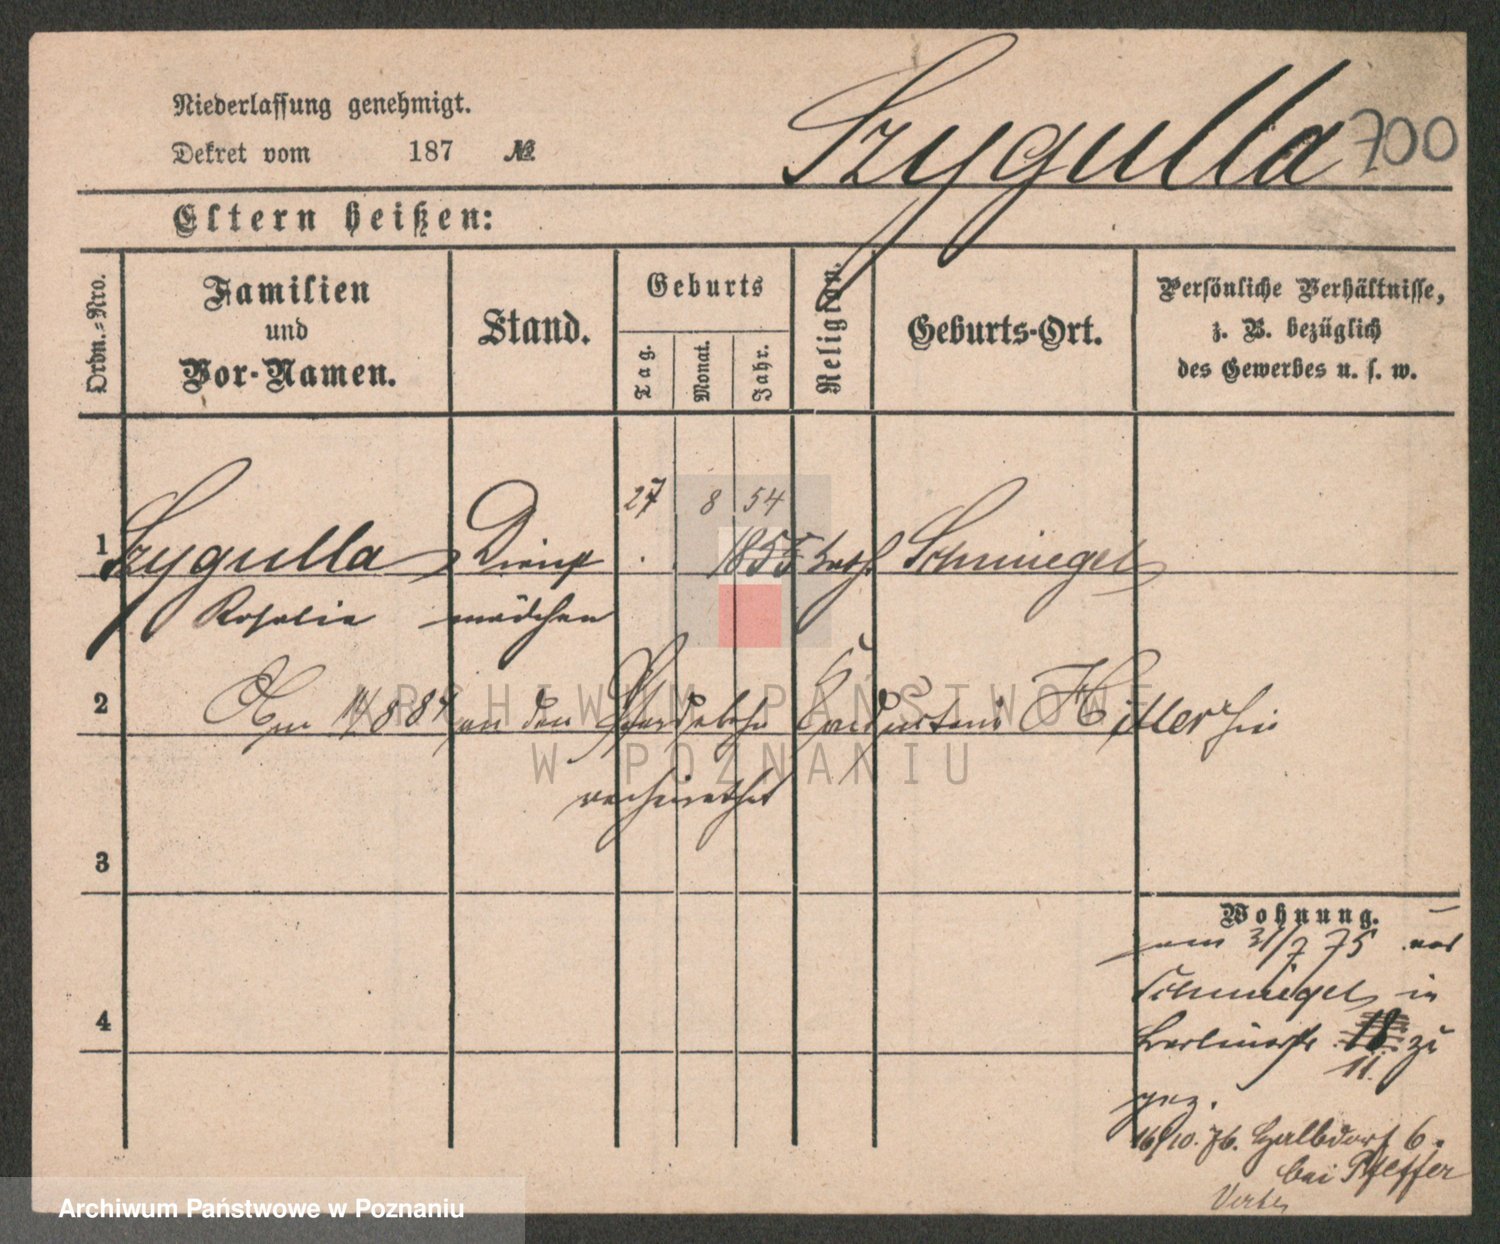 Niederlassung genehmigt.
Dekret vom 187 №
Szygulla 700
Eltern heißen:
Ordn.=Nro.
Familien
und
Vor-Namen.
Stand.
Geburts
Tag.
Monat.
Jahr.
Religion.
Geburts-Ort.
Persönliche Verhältnisse,
z. B. bezüglich
des Gewerbes u. s. w.
27 8 54
1 Szygulla Dienst 1855 kath. Schmiegel
Rosalie mädchen
2 Am 14/8 84 an den Pferdebahn Conducteur Hitler hier
verheirathet
3
Wohnung.
am 31/7 75 aus
Schmiegel in
4
Berlinerstr 18 zu
11.
gez.
16/10. 76. Halbdorf 6.
bei Pfeffer
ARCHIWUM PAŃSTWOWE
W POZNANIU
Archiwum Państwowe w Poznaniu